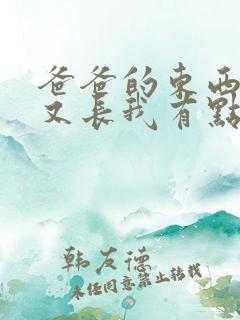 爸爸的東西
又長我有點
韩友德
未经同意禁止转载